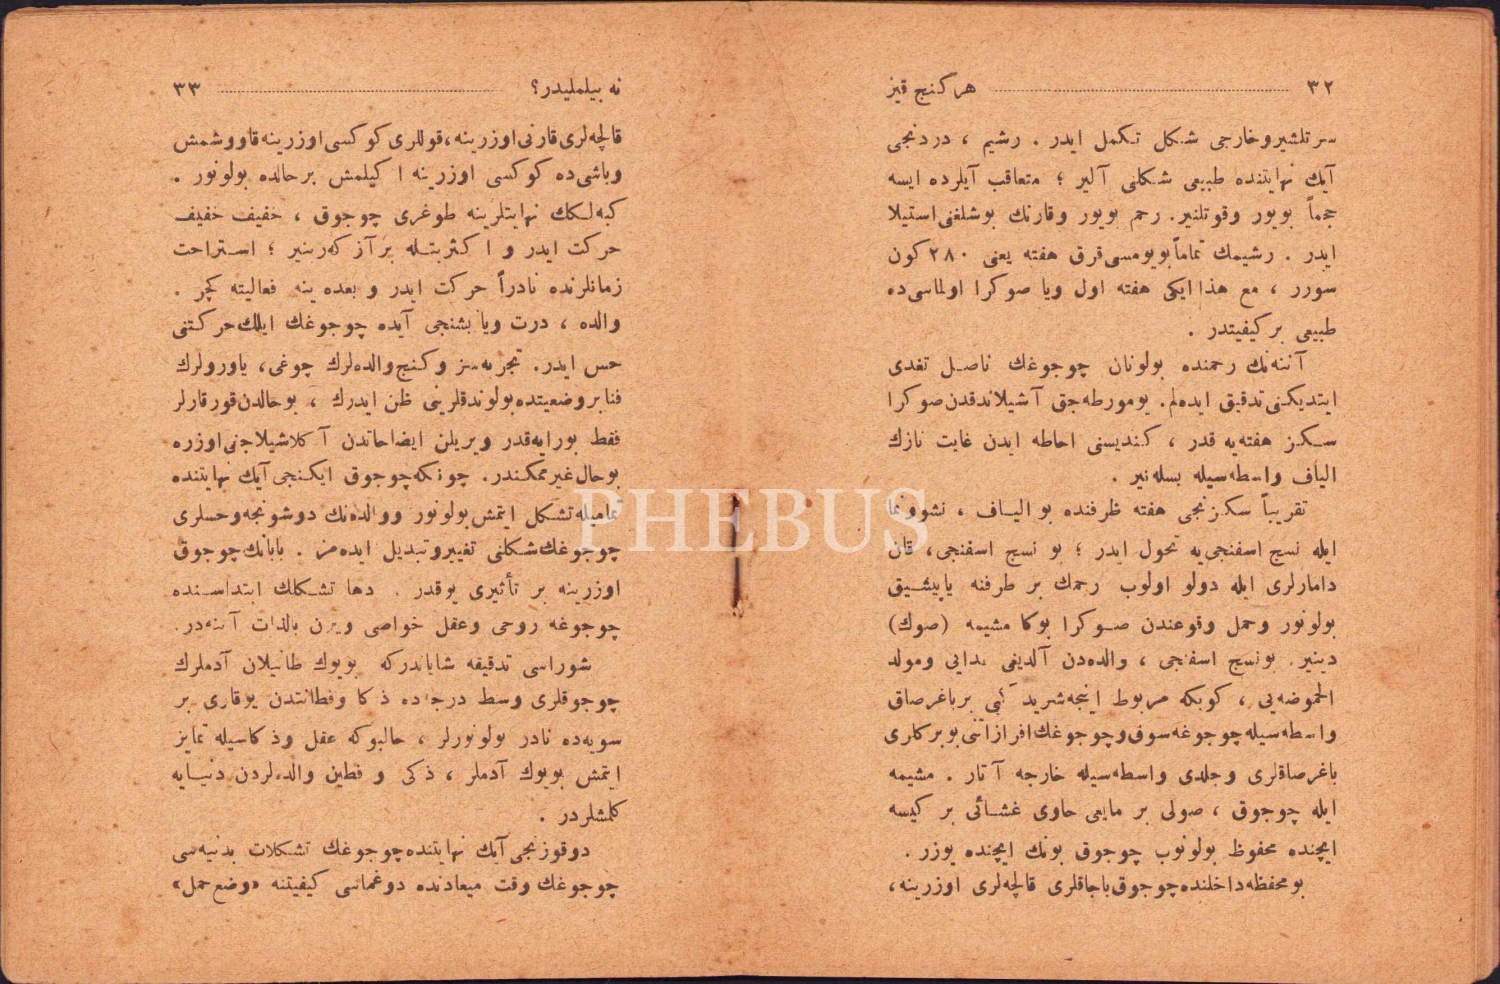 ٣٢ هر كنج قيز
سرتلشير و خارجى شكل تكمل ايدر . رشيم ، دردنجى
آيك نهايتنده طبيعى شكلنى آلير ؛ متعاقب آيلرده ايسه
حجماً بويور وقوتلنير. رحم بويور وقارنك بوشلغنى استيلا
ايدر . رشيمك تماماً بويومسى قرق هفته يعنى ٢٨٠ كون
سورر ، مع هذا ايكى هفته اول ويا صوكرا اولماسى ده
طبيعى بر كيفيتدر .
آننه‌نك رحمنده بولونان چوجوغك ناصل تغدى
ايتديكنى تدقيق ايده‌لم. يومورطه‌جق آشيلاندقدن صوكرا
سكز هفته‌يه قدر ، كنديسنى احاطه ايدن غايت نازك
الياف واسطه‌سيله بسله‌نير .
تقريباً سكزنجى هفته ظرفنده بو الياف ، نشوونما
ايله نسج اسفنجى‌يه تحول ايدر ؛ بو نسج اسفنجى، قان
دامارلرى ايله دولو اولوب رحمك بر طرفنه ياپيشيق
بولونور وحمل وقوعندن صوكرا بوكا مشيمه (صوك)
دينير. بونسج اسفنجى ، والده‌دن آلديغى غدايى ومولد
الحموضه‌يى ، كوبكه مربوط اينجه شريد كبى بر باغرصاق
واسطه‌سيله چوجوغه سوق وچوجوغك افرازاتنى بوبركلرى
باغرصاقلرى وجلدى واسطه‌سيله خارجه آتار . مشيمه
ايله چوجوق ، صولى بر مايعى حاوى غشائى بر كيسه
ايچنده محفوظ بولونوب چوجوق بونك ايچنده يوزر .
بو محفظه داخلنده چوجوق باجاقلرى قالچه‌لرى اوزرينه،
نه بيلمليدر؟ ٣٣
قالچه‌لرى قارنى اوزرينه، قوللرى كوكسى اوزرينه قاووشمش
وباشى ده كوكسى اوزرينه اكيلمش بر حالده بولونور .
كبه‌لكك نهايتلرينه طوغرى چوجوق ، خفيف خفيف
حركت ايدر و اكثريتله بر آز كه‌رينير ؛ استراحت
زمانلرنده نادراً حركت ايدر و بعده ينه فعاليته كچر .
والده ، درت ويا بشنجى آيده چوجوغك ايلك حركتنى
حس ايدر. تجربه‌سز وكنج والده‌لرك چوغى، ياورولرك
فنا بر وضعيتده بولوندقلرينى ظن ايدرك ، بو حالدن قورقارلر
فقط بورايه قدر ويريلن ايضاحاتدن آكلاشيلاجنى اوزره
بو حال غير ممكندر. چونكه چوجوق ايكنجى آيك نهايتنده
تماميله تشكل ايتمش بولونور و والده‌نك دوشونجه وحسلرى
چوجوغك شكلنى تغيير وتبديل ايده‌مز . بابانك چوجوق
اوزرينه بر تأثيرى يوقدر . دها تشكلك ابتداسنده
چوجوغه روحى وعقل خواصى ويرن بالذات آننه‌در.
شوراسى تدقيقه شاياندركه بويوك طانيلان آدملرك
چوجوقلرى وسط درجه‌ده ذكا وفطانتدن يوقارى بر
سويه‌ده نادر بولونورلر ، حالبوكه عقل وذكاسيله تمايز
ايتمش بويوك آدملر ، ذكى و فطين والده‌لردن دنيايه
كلمشلردر .
دوقوزنجى آيك نهايتنده چوجوغك تشكلات بدنيه‌سى
چوجوغك وقت ميعادنده دوغماسى كيفيتنه «وضع حمل»
PHEBUS